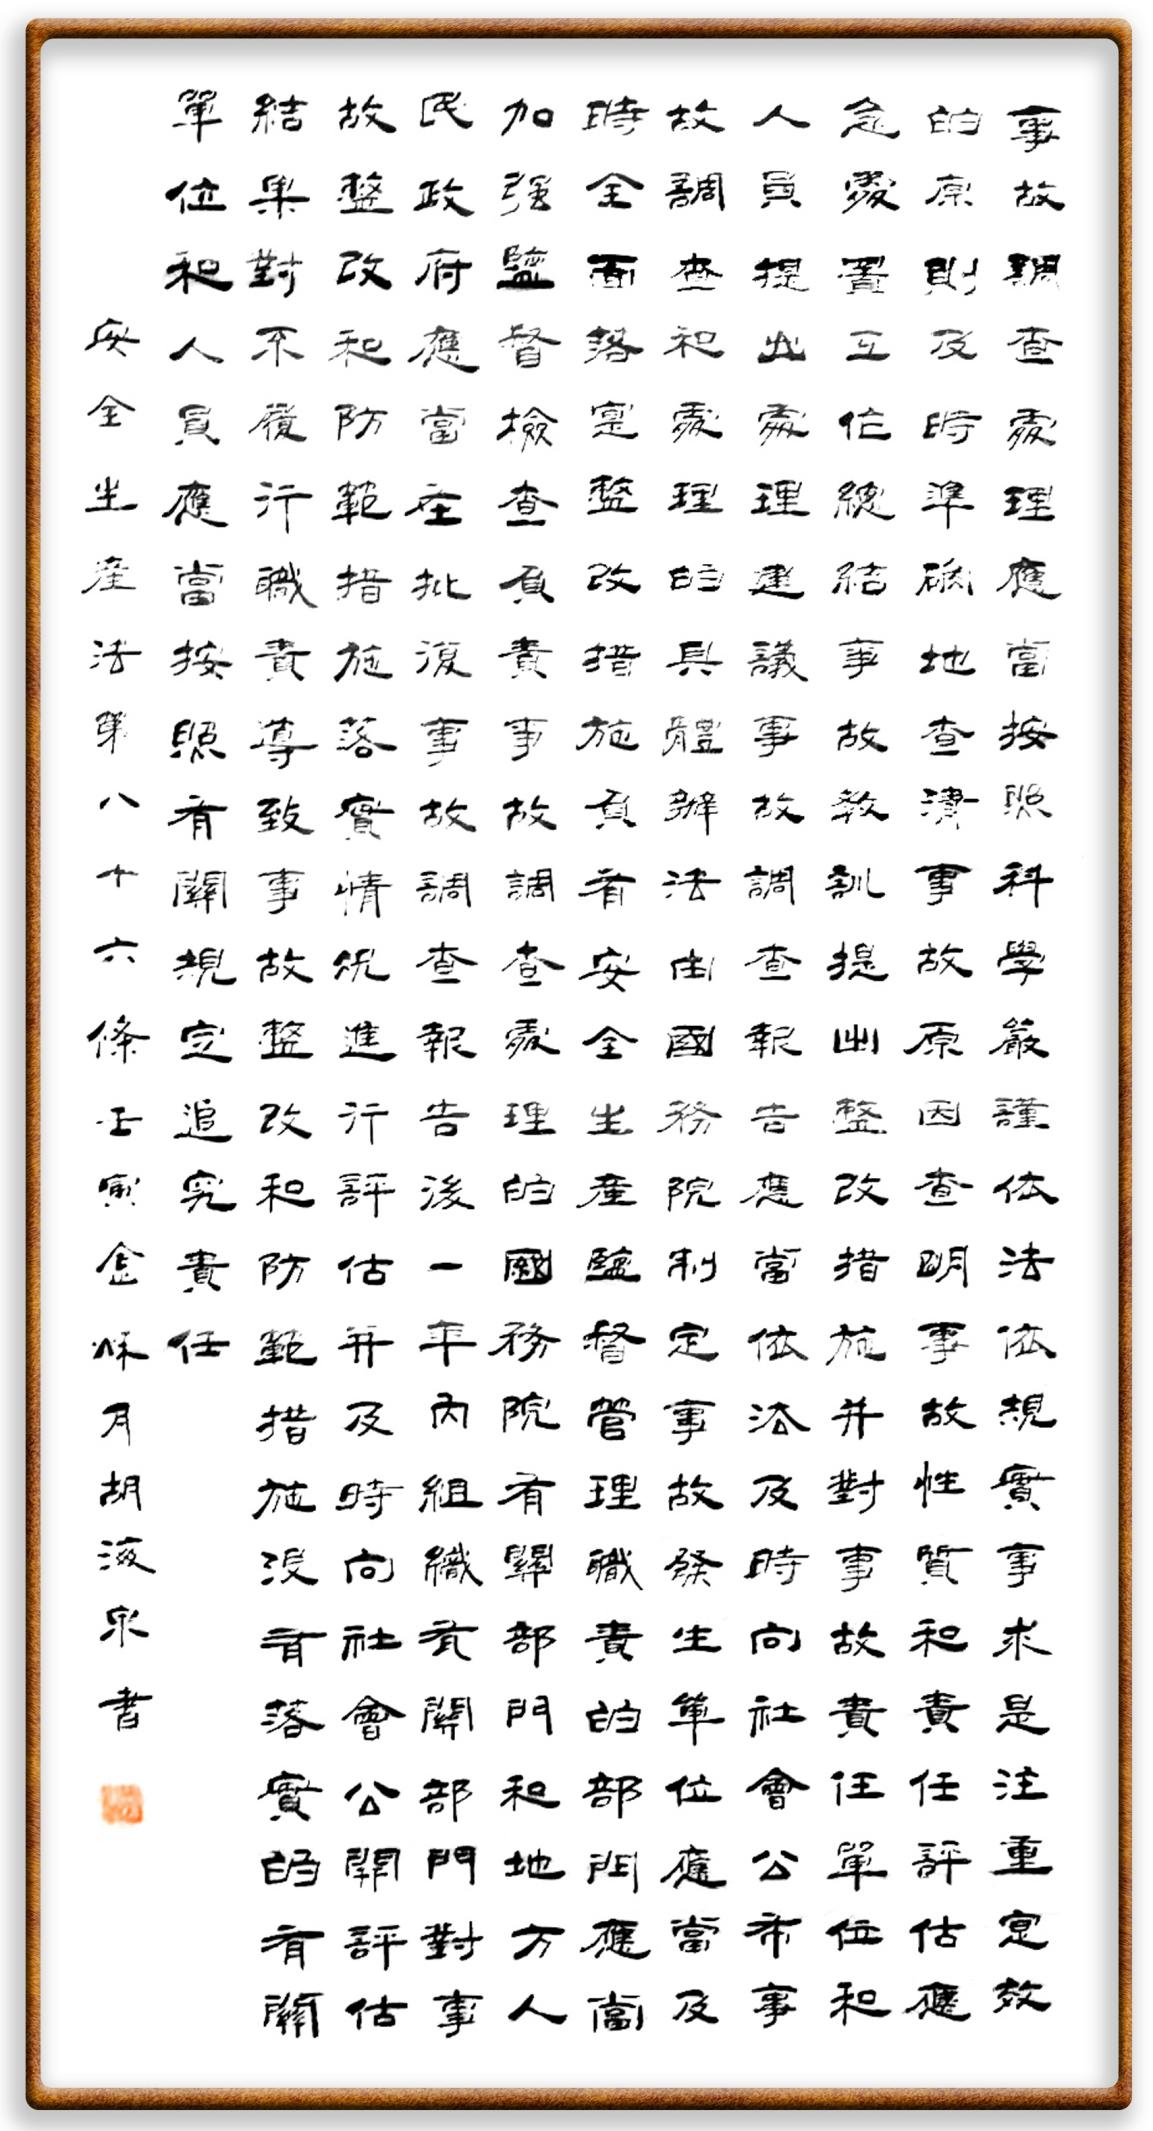 事故調查處理應當按照科學嚴謹依法依規實事求是注重實效
的原則及時準確地查清事故原因查明事故性質和責任評估應
急處置工作總結事故教訓提出整改措施并對事故責任單位和
人員提出處理建議事故調查報告應當依法及時向社會公布事
故調查和處理的具體辦法由國務院制定事故發生單位應當及
時全面落實整改措施負有安全生產監督管理職責的部門應當
加强監督檢查負責事故調查處理的國務院有關部門和地方人
民政府應當在批復事故調查報告後一年內組織有關部門對事
故整改和防範措施落實情況進行評估并及時向社會公開評估
結果對不履行職責導致事故整改和防範措施没有落實的有關
單位和人員應當按照有關規定追究責任
安全生產法第八十六條壬寅金秌月胡海泉書